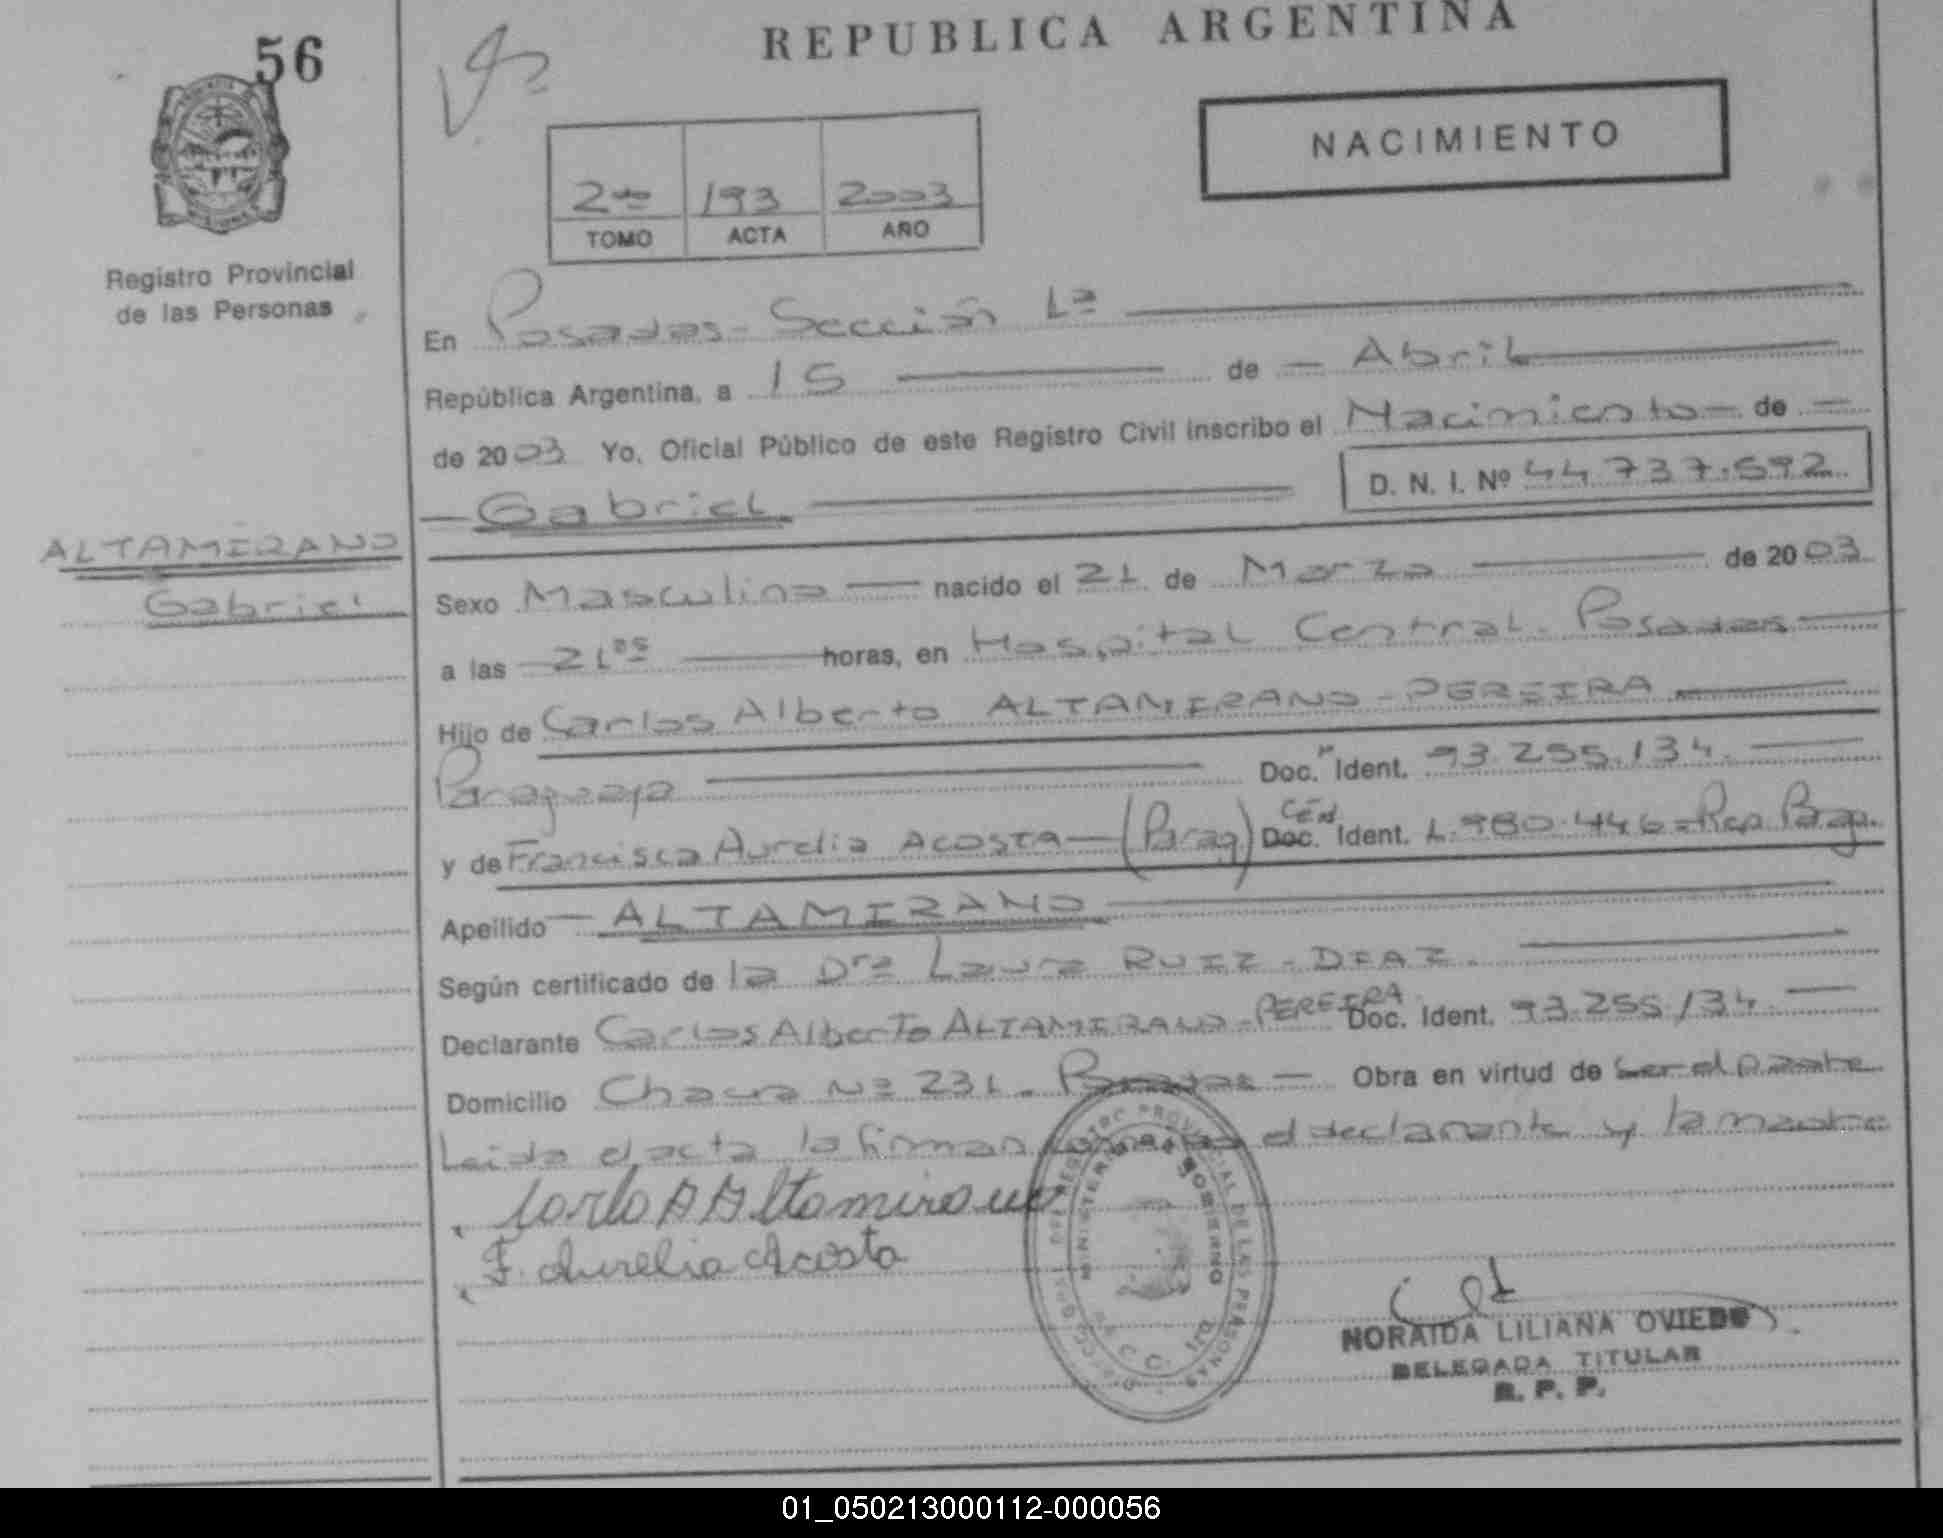 56
REPUBLICA ARGENTINA
NACIMIENTO
2do 193 2003
TOMO ACTA AÑO
Registro Provincial
de las Personas
En Posadas - Sección 1ª
República Argentina, a 15 de Abril
de 2003 Yo, Oficial Público de este Registro Civil inscribo el Nacimiento de
Gabriel D. N. I. Nº 44.737.592
ALTAMIRANO
Gabriel
Sexo Masculino nacido el 21 de Marzo de 2003
a las 21 05 horas, en Hospital Central - Posadas
Hijo de Carlos Alberto ALTAMIRANO - PEREIRA
Paraguaya Doc. Ident. 93.255.134.
y de Francisca Aurelia ACOSTA (Parag) CED Doc. Ident. 1.980.446 - Rep. Parag.
Apellido ALTAMIRANO
Según certificado de la Dra Laura RUIZ - DIAZ.
Declarante Carlos Alberto ALTAMIRANO - PEREIRA Doc. Ident. 93.255.134.
Domicilio Chacra Nº 231 - Posadas Obra en virtud de ser el padre
Leida el acta la firman el declarante y la madre
Carlos A Altamirano
F. Aurelia Acosta
REGISTRO PROVINCIAL DE LAS PERSONAS
MINISTERIO DE GOBIERNO
NORAIDA LILIANA OVIEDO
DELEGADA TITULAR
R. P. P.
01_050213000112-000056